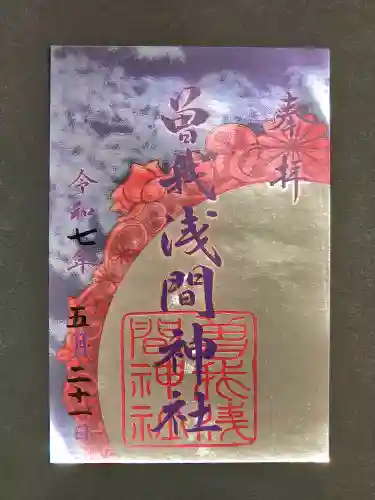 奉拝
曽我浅間神社
令和七年
五月二十一日
曽我浅間神社